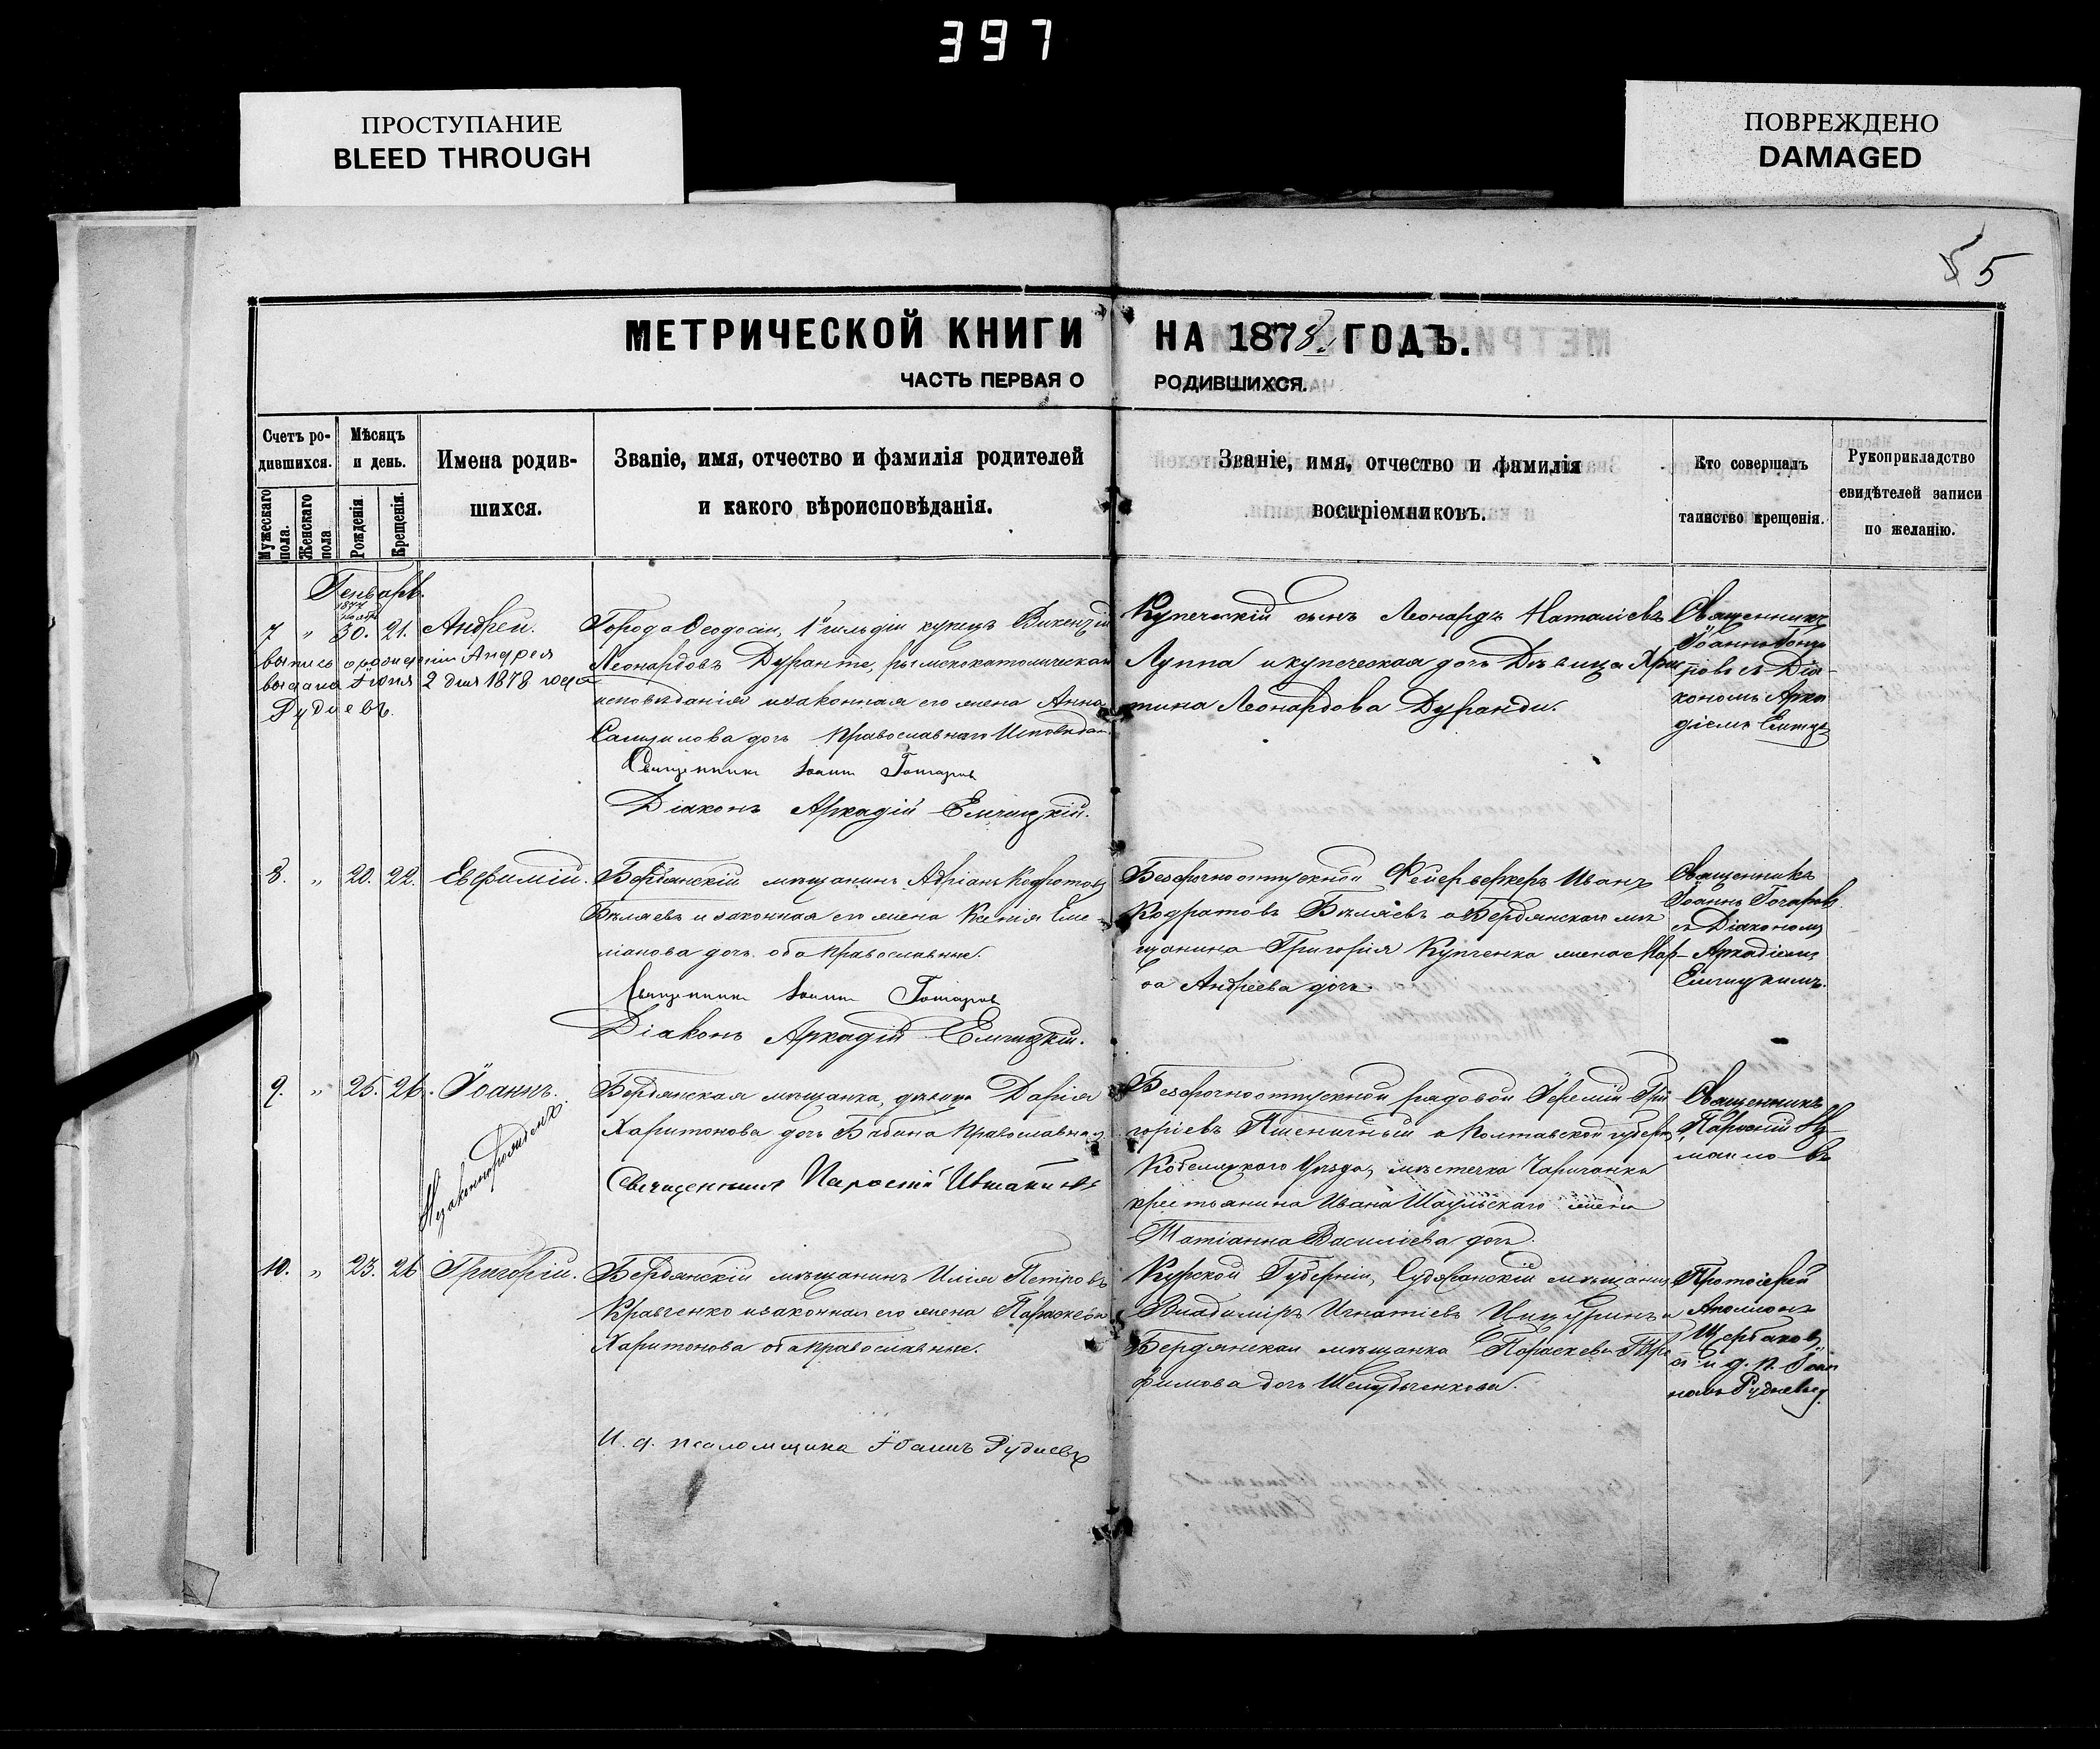 397
ПРОСТУПАНИЕ
BLEED THROUGH
ПОВРЕЖДЕНО
DAMAGED
5
МЕТРИЧЕСКОЙ КНИГИ НА 1878 ГОДЪ.
ЧАСТЬ ПЕРВАЯ О РОДИВШИХСЯ.
Счетъ ро-
дившихся.
Мужескаго пола.
Женскаго пола
Мѣсяцъ
и день.
Рожденія
Крещенія.
Имена родив-
шихся.
Званіе, имя, отчество и фамилія родителей
и какого вѣроисповѣданія.
Званіе, имя, отчество и фамилія
воспріемниковъ.
Кто совершалъ
таинство крещенія.
Рукоприкладство
свидѣтелей записи
по желанію.
Генварь.
1877
7 " 30. 21. Андрей.
выпись о рожденіи Андрея
выдана Іюня 2 дня 1878 года
Рудневъ.
Города Ѳеодосіи, 1й гильдіи купецъ Викентій
Леонардовъ Дуранте, рымскокатолическаго
исповѣданія и законная его жена Анна
дочь Православнаго Исповѣдан.
Священникъ Іоаннъ Гончаровъ
Діаконъ Аркадій Елчицкій.
Купеческій сынъ Леонардъ Наталіевъ
Луппа и купеческая дочь Дѣвица Хрис
тина Леонардова Дуранди.
Священникъ
Іоаннъ Гонча
ровъ съ Діа-
кономъ Арка
діемъ
8. " 20. 22. Евфимій.
Бердянскій мѣщанинъ Адріанъ Кодратовъ
Бѣляевъ и законная его жена Ксенія Еме-
ліанова дочь оба православные.
Священникъ Іоаннъ Гончаровъ
Діаконъ Аркадій Елчицкій.
Безсрочноотпускной Фейерверкеръ Иванъ
Кодратовъ Бѣляевъ и Бердянскаго мѣ
щанина Григорія Купченка жена Мар-
ѳа Андреева дочь.
Священникъ
Іоаннъ Гончаровъ
съ Діакономъ
Аркадіемъ
Елчицкимъ.
9. " 25. 26. Іоаннъ.
Незаконнорожденъ.
Бердянская мѣщанка, дѣвица Дарія
Харитонова дочь Бабина Православная.
Священникъ
Безсрочноотпускной рядовой Іеремій Гри
горіевъ Пшеничный и Полтавской губерн.
Кобеляцкаго Уѣзда, мѣстечка Чаричанки
крестьянина Ивана жена
Татіанна Василіева дочь.
Священникъ
10. " 23. 26 Григорій.
Бердянскій мѣщанинъ Илія Петровъ
Кравченко и законная его жена Параскева
Харитонова оба православные.
И. д. псаломщика Іоаннъ Рудневъ
Курской Губерніи, Суджанскій мѣщанинъ
Владиміръ Игнатіевъ и
Бердянская мѣщанка Параскева Тро
фимова дочь
Протоіерей
Аполлонъ
Щербаковъ
съ и. д. п. Іоан
номъ Рудневы.